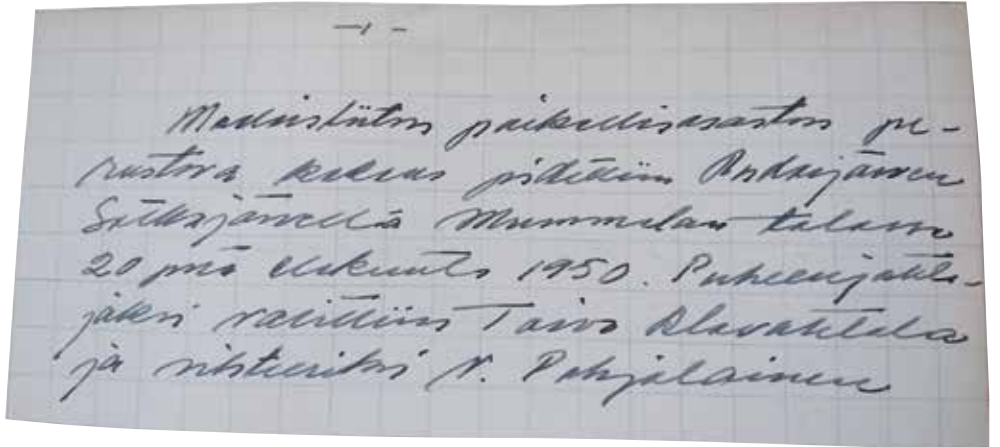 — 1 —
Maalaisliiton paikallisosaston pe-
rustava kokous pidettiin Pudasjärven
Sotkajärvellä Mummolan talossa
20 pnä elokuuta 1950. Puheenjohta-
jaksi valittiin Toivo Alavahtola
ja sihteeriksi V. Pohjalainen